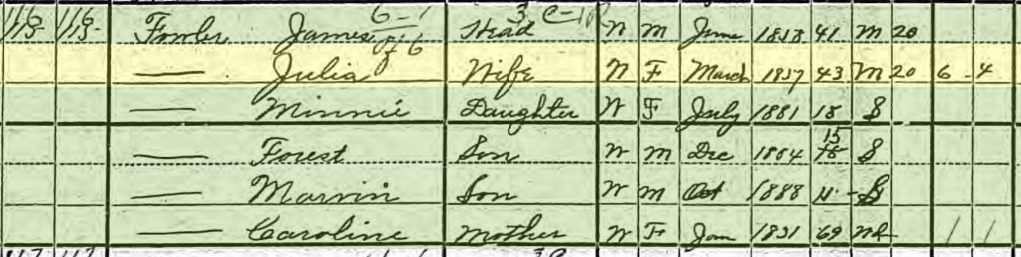 116 116 Fowler James Head W M June 1858 41 M 20
— Julia Wife W F March 1857 43 M 20 6 4
— Minnie Daughter W F July 1881 18 S
— Forest Son W M Dec 1884 15 S
— Marvin Son W M Oct 1888 11 S
— Caroline Mother W F Jan 1831 69 Wd 1 1